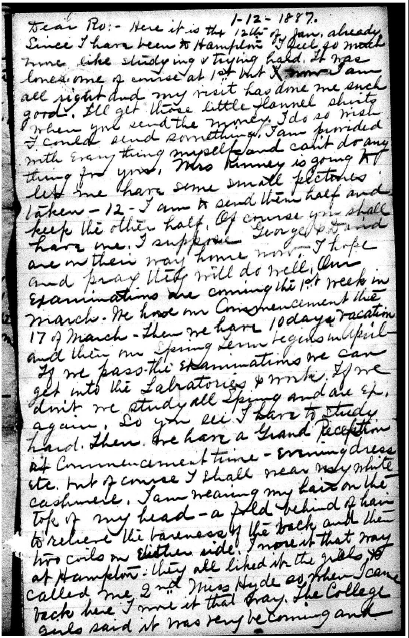 1-12-1887.
Dear Ro:- Here it is the 12th of Jan, already
Since I have been to Hampton I feel so much
more like studying & trying hard. It was
lonesome of course at 1st but now I am
all right and my visit has done me such
good. I'll get those little flannel shirts
when you send the money. I do so wish
I could send something. I am provided
with everything myself and can't do any
thing for you. Mrs Kinney is going to
let me have some small pictures
taken - 12 - I am to send them half and
keep the other half. Of course you shall
have one. I suppose George and
are on their way home now - I hope
and pray they will do well. Our
Examinations are coming the 1st week in
March. We have our Commencement the
17 of March - then we have 10 days vacation
and then our Spring Term begins in April
If we pass the Examinations we can
get into the Labratories & work, If we
don't, we study all Spring and are Ex.
again. So you see I have to Study
hard. Then we have a Grand Reception
at Commencement time - Evening dress
etc. but of course I shall wear my white
cashmere. I am wearing my hair on the
top of my head - a fold behind of hair
to relieve the bareness of the back and then
two coils on Either side. I wore it that way
at Hampton - they all liked it the girls
called me 2nd Miss Hyde so when I came
back here I wore it that way. The College
girls said it was very becoming and